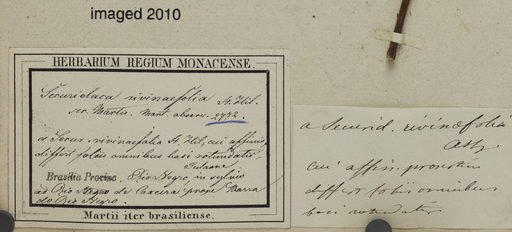 imaged 2010
HERBARIUM REGIUM MONACENSE.
Securidaca rivinaefolia St. Hil.
sec. Martii. Mart. observ. 2732.
a Secur. rivinaefolia St. Hil., cui affinis,
differt foliis omnibus basi rotundatis
Brasilia Provinc. Rio Negro, in sylvis
ad Rio Negro de prope Barra
do Rio Negro.
Martii iter brasiliense.
a Securid. rivinaefolia
cui affin.
differt foliis omnibus
basi rotundatis